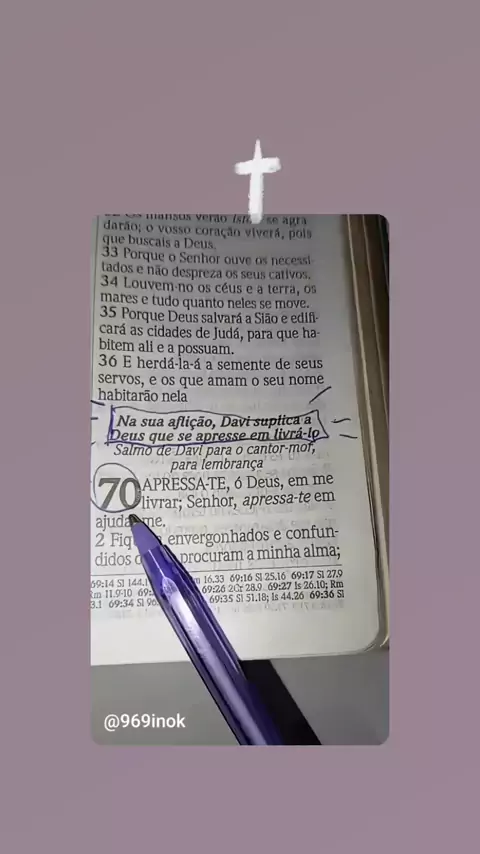 32 Os mansos verão isto, se agra
darão; o vosso coração viverá, pois
que buscais a Deus.
33 Porque o Senhor ouve os necessi
tados e não despreza os seus cativos.
34 Louvem-no os céus e a terra, os
mares e tudo quanto neles se move.
35 Porque Deus salvará a Sião e edifi-
cará as cidades de Judá, para que ha-
bitem ali e a possuam.
36 E herdá-la-á a semente de seus
servos, e os que amam o seu nome
habitarão nela
Na sua aflição, Davi suplica a
Deus que se apresse em livrá-lo
Salmo de Davi para o cantor-mor,
para lembrança
70 APRESSA-TE, ó Deus, em me
livrar; Senhor, apressa-te em
ajuda me.
2 Fiq envergonhados e confun-
didos procuram a minha alma;
69:14 Sl 144. 16.33 69:16 Sl 25.16 69:17 Sl 27.9
Rm 11.9-10 69:26 2Cr 28.9 69:27 Is 26.10; Rm
3.1 69:34 Sl 96. 69:35 Sl 51.18; Is 44.26 69:36 Sl
@969inok